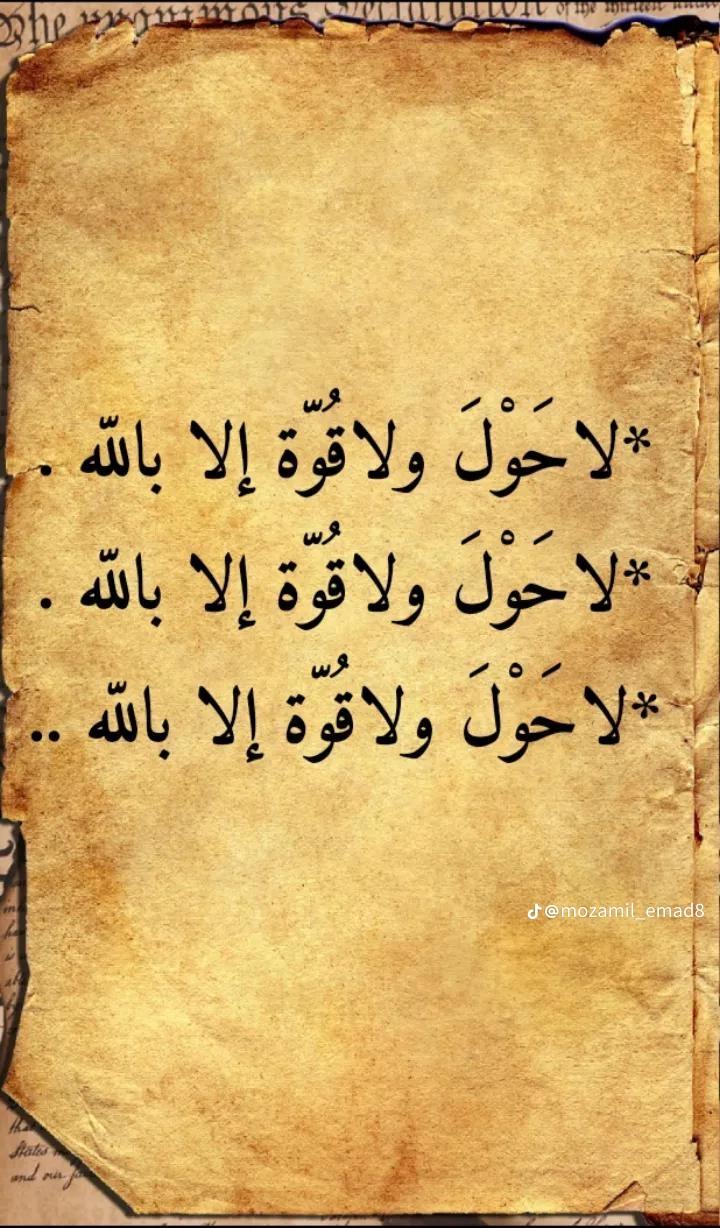 The unanimous Declaration of the thirteen united
*لا حَوْلَ ولا قُوّة إلا بالله .
*لا حَوْلَ ولا قُوّة إلا بالله .
*لا حَوْلَ ولا قُوّة إلا بالله ..
@mozamil_emad8
that
States
and our